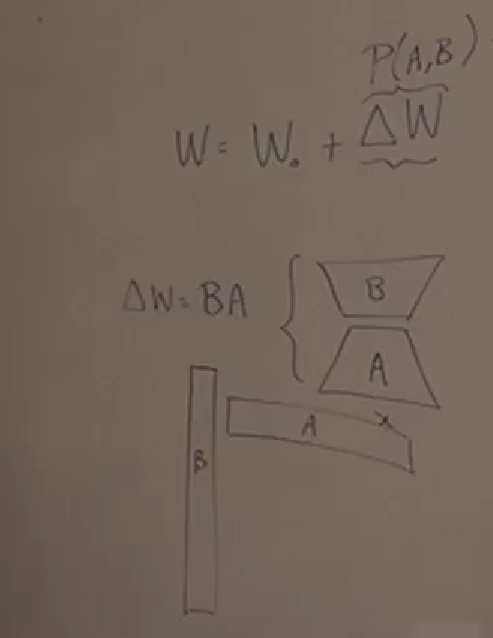 P(A,B)
W = W₀ + ΔW
ΔW = BA
B
A
A
x
B